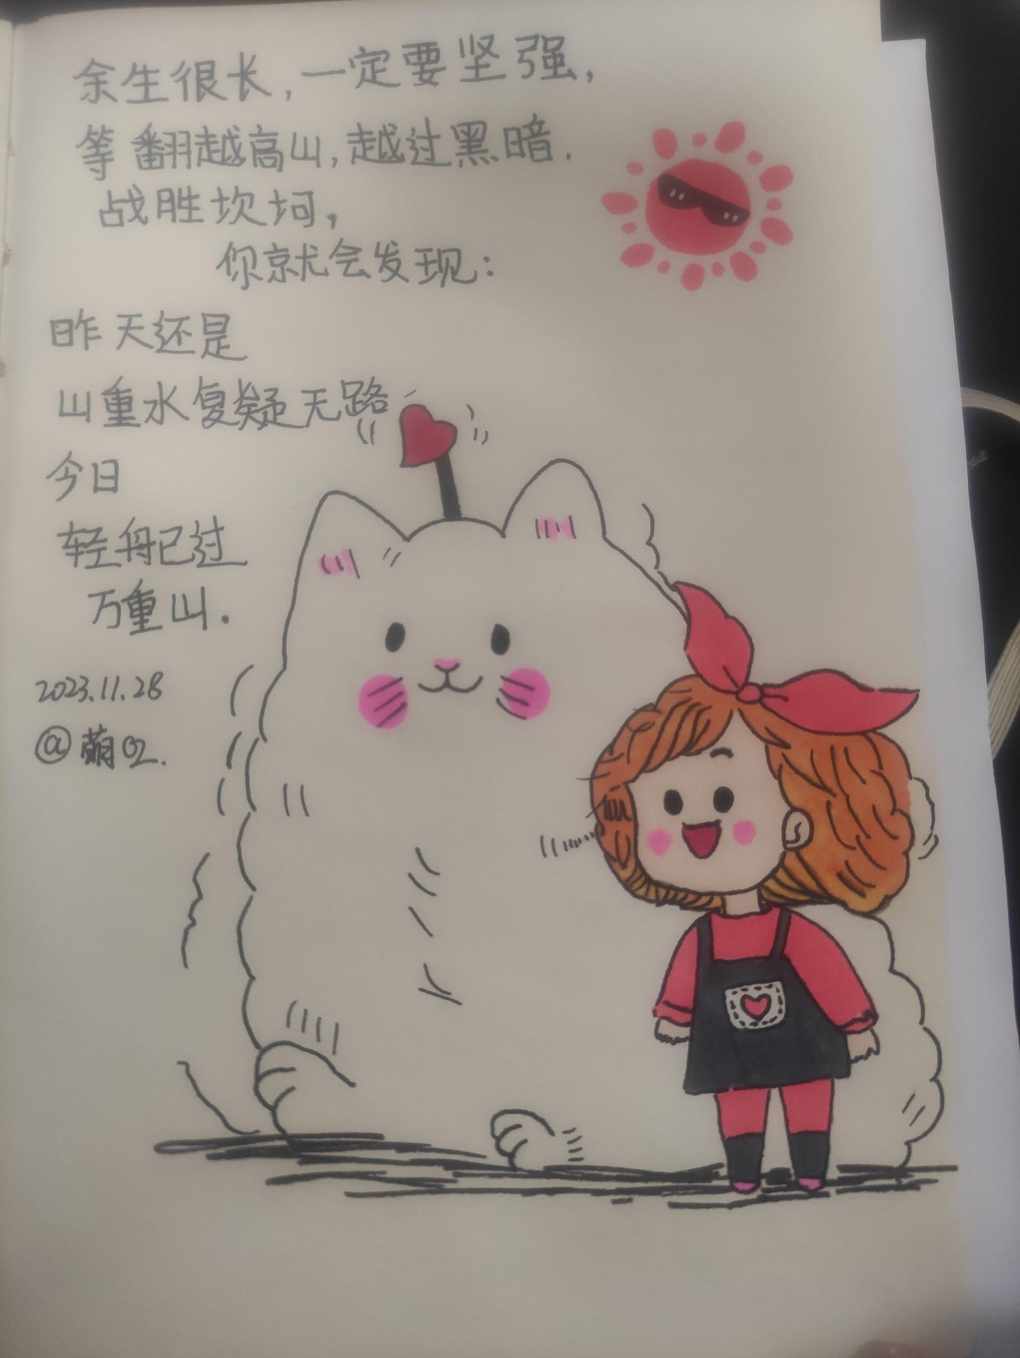 余生很长，一定要坚强，
等翻越高山，越过黑暗.
战胜坎坷，
你就会发现：
昨天还是
山重水复疑无路
今日
轻舟已过
万重山.
2023.11.28
@萌